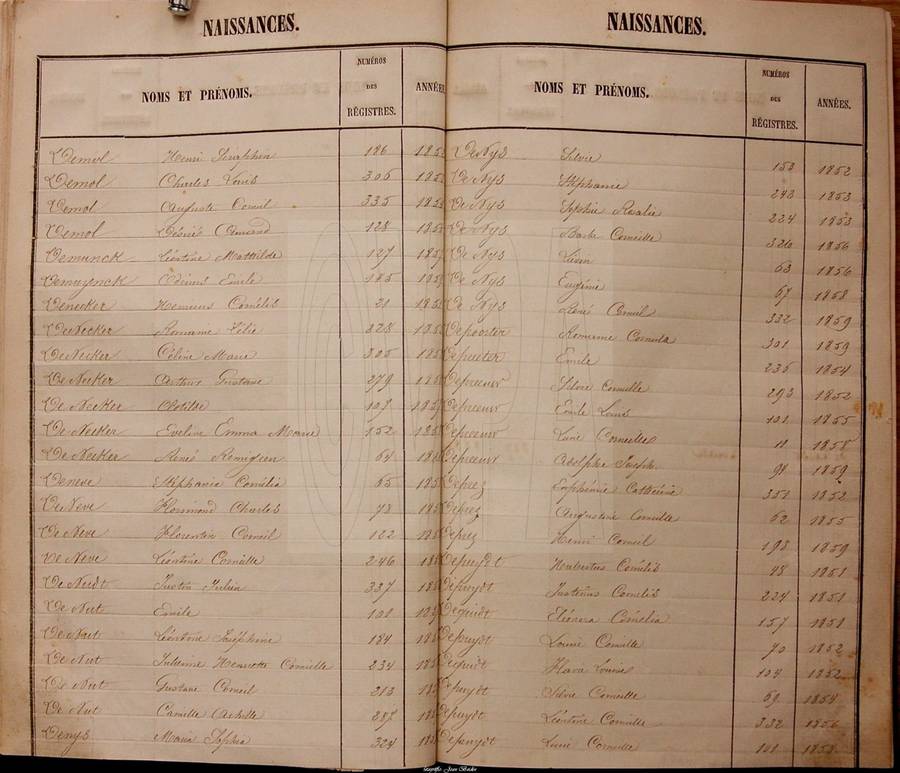 NAISSANCES.
NOMS ET PRÉNOMS. NUMÉROS DES RÉGISTRES. ANNÉES
Demol Henri Séraphin 186 185
Demol Charles Louis 306 185
Demol Auguste Corneil 335 185
Demol Désiré Armand 128 185
Demunck Léontine Mathilde 127 185
Demuynck Edmus Emile 185 185
Denecker Hemerus Cornélis 21 185
DeNecker Romanie 328 185
DeNecker Céline Marie 305 185
DeNecker Arthur Gustave 279 185
De Necker Clotilde 107 185
De Necker Eveline Emma Marie 152 185
De Necker René Remigien 64
Deneve Stéphanie Cornélia 85 185
De Neve Florimond Charles 78 185
De Neve Florentin Corneil 122 185
De Neve Léontine Cornélie 246
De Neudt Justin Julien 337
De Nut Emile 101 185
De Nut Léontine Joséphine 184 185
De Nut Julienne Henriette Cornélie 234 185
De Nut Gustave Corneil 213 185
De Nut Camille Achille 287
Denys Marie Sophie 324
NAISSANCES.
NOMS ET PRÉNOMS. NUMÉROS DES RÉGISTRES. ANNÉES.
DeNys Silvie 153 1852
De Nys Stéphanie 242 1853
De Nys Sophie Rosalie 224 1853
De Nys Barbe Cornélie 320 1856
De Nys Liévin 63 1856
De Nys Eugénie 67 1858
De Nys René Corneil 332 1859
Depoorter Romanie Cornélia 301 1859
Depueter Emile 235 1854
Depreeuw Silvie Cornélie 293 1852
Depreeuw Emile Louis 101 1855
Depreeuw Lucie 11 1858
Depreeuw Adolphe Joseph 98 1859
Deprez Euphémie Cathérine 351 1852
Deprez Augustine Cornélie 62 1855
Deprez Henri Corneil 198 1859
Depuydt Hubertus Cornélis 48 1851
Depuydt Justinus Cornelis 224 1851
Dequidt Cornélia 157 1851
Depuydt Louise Cornélie 70 1852
Dequidt Flavie Louise 104 1852
Depuydt Silvie Cornélie 69 1854
Depuydt Léontine Cornélie 332 1856
Depuydt Lucie Cornélie 101